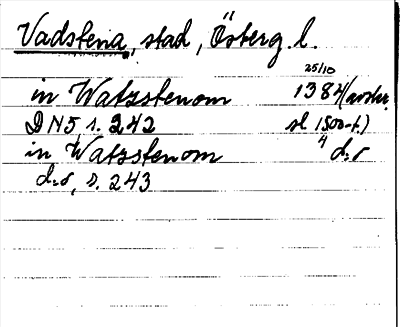 Vadstena, stad, Österg. l.
25/10
in Watzstenom 1384 (avskr.
DN 5, s. 242 sl. 1500-t.)
in Watzstenom d:o
d:o, s. 243